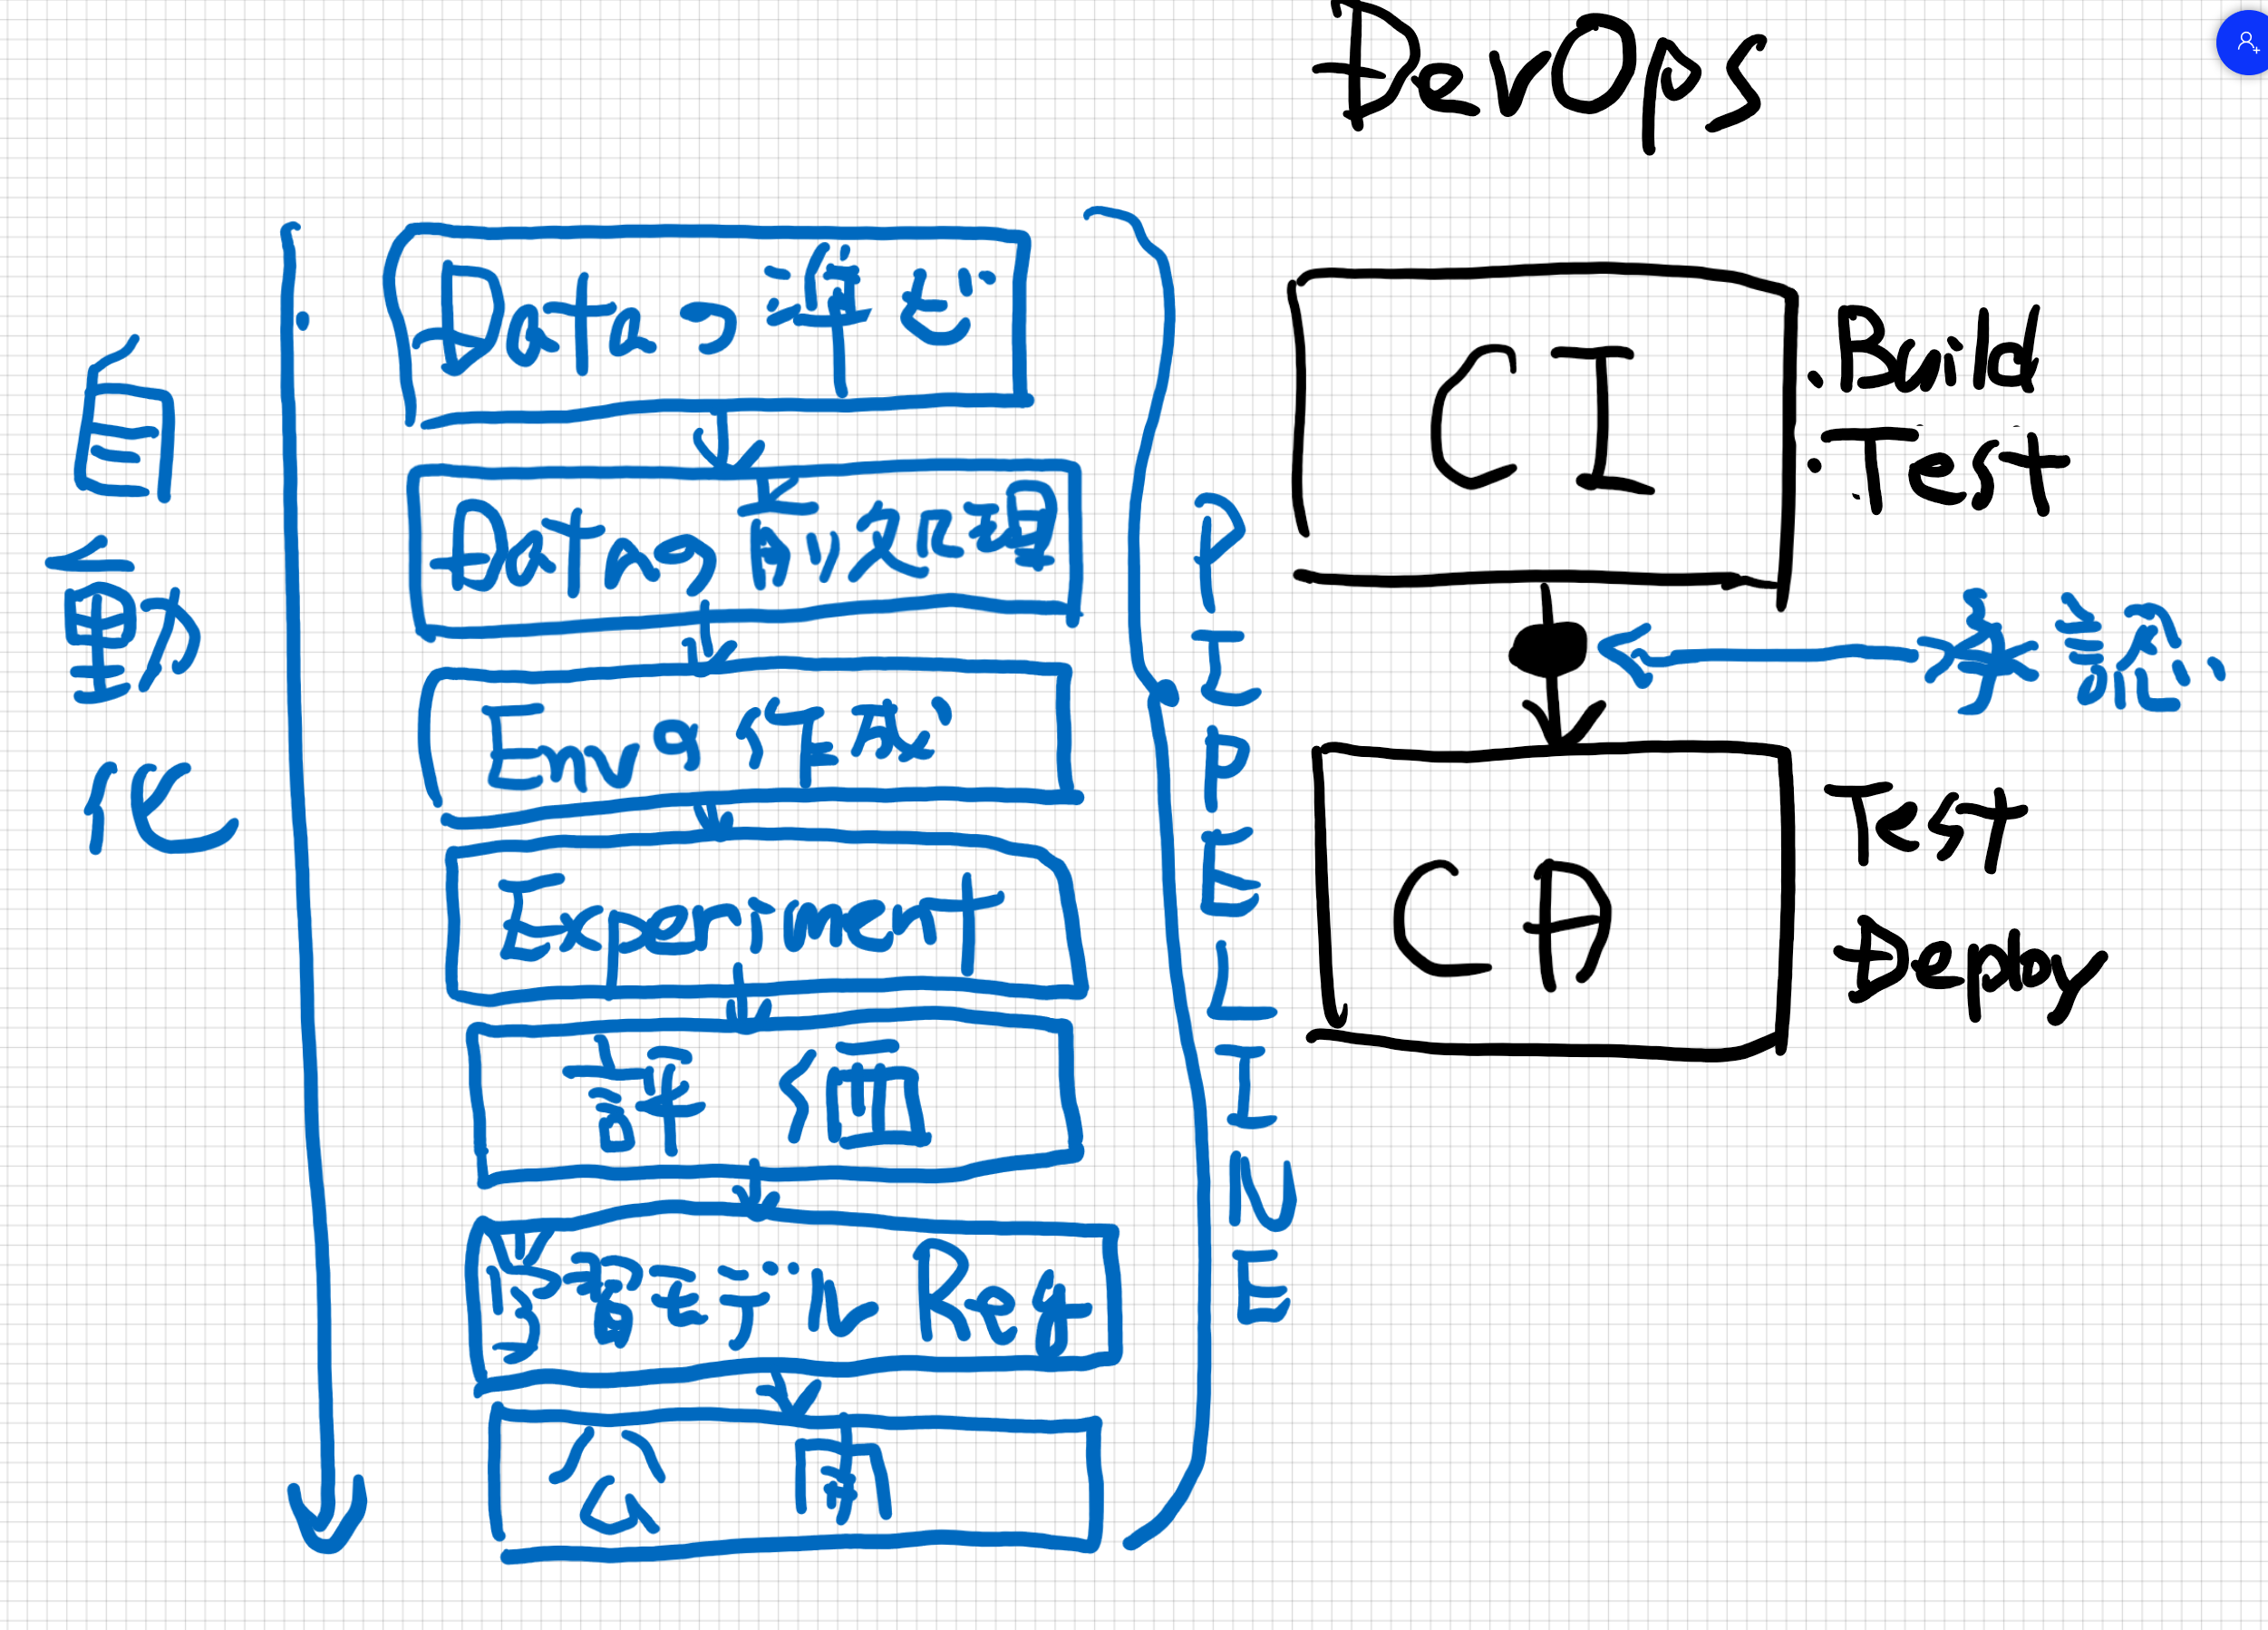 DevOps
自動化
Dataの準び
Dataの前処理
Envの作成
Experiment
評価
学習モデル Reg
公開
PIPELINE
CI
・Build
・Test
承認
CD
Test
Deploy